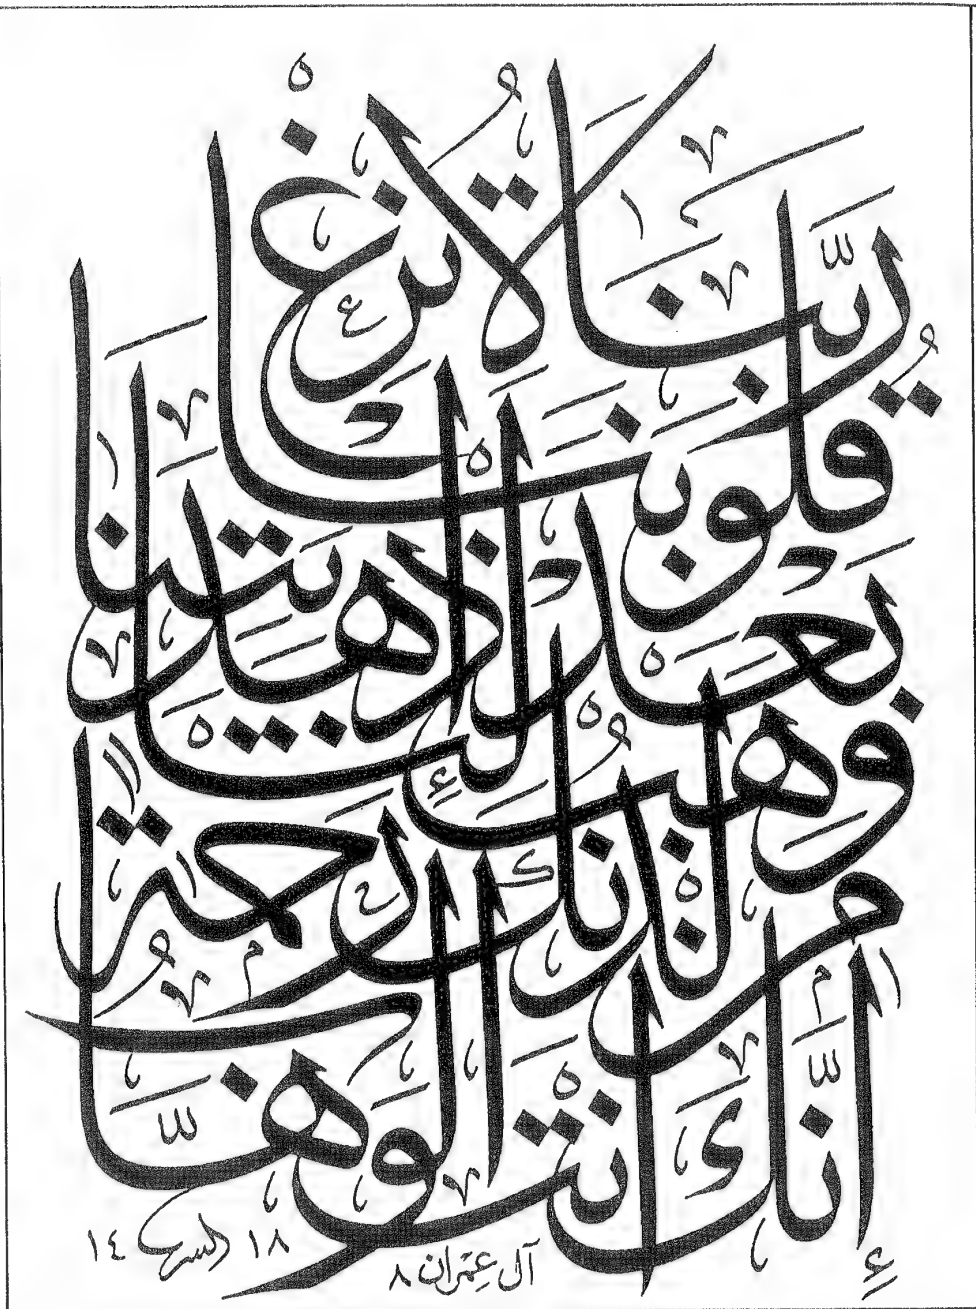 رَبَّنَا لَا تُزِغْ
قُلُوبَنَا
بَعْدَ إِذْ هَدَيْتَنَا
وَهَبْ لَنَا
مِن لَّدُنكَ رَحْمَةً
إِنَّكَ أَنتَ الْوَهَّابُ
آل عِمْرَان ٨
١٤ ١٨